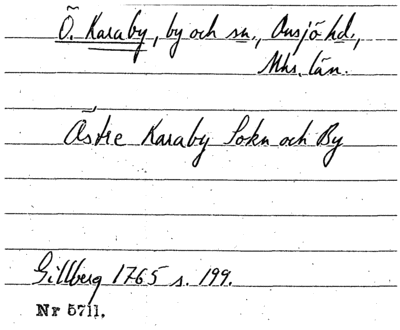 Ö. Karaby, by och sn., Onsjö hd.,
Mhs. län.
Östre Karaby Sokn och By
Gillberg 1765 s. 199.
Nr 5711.